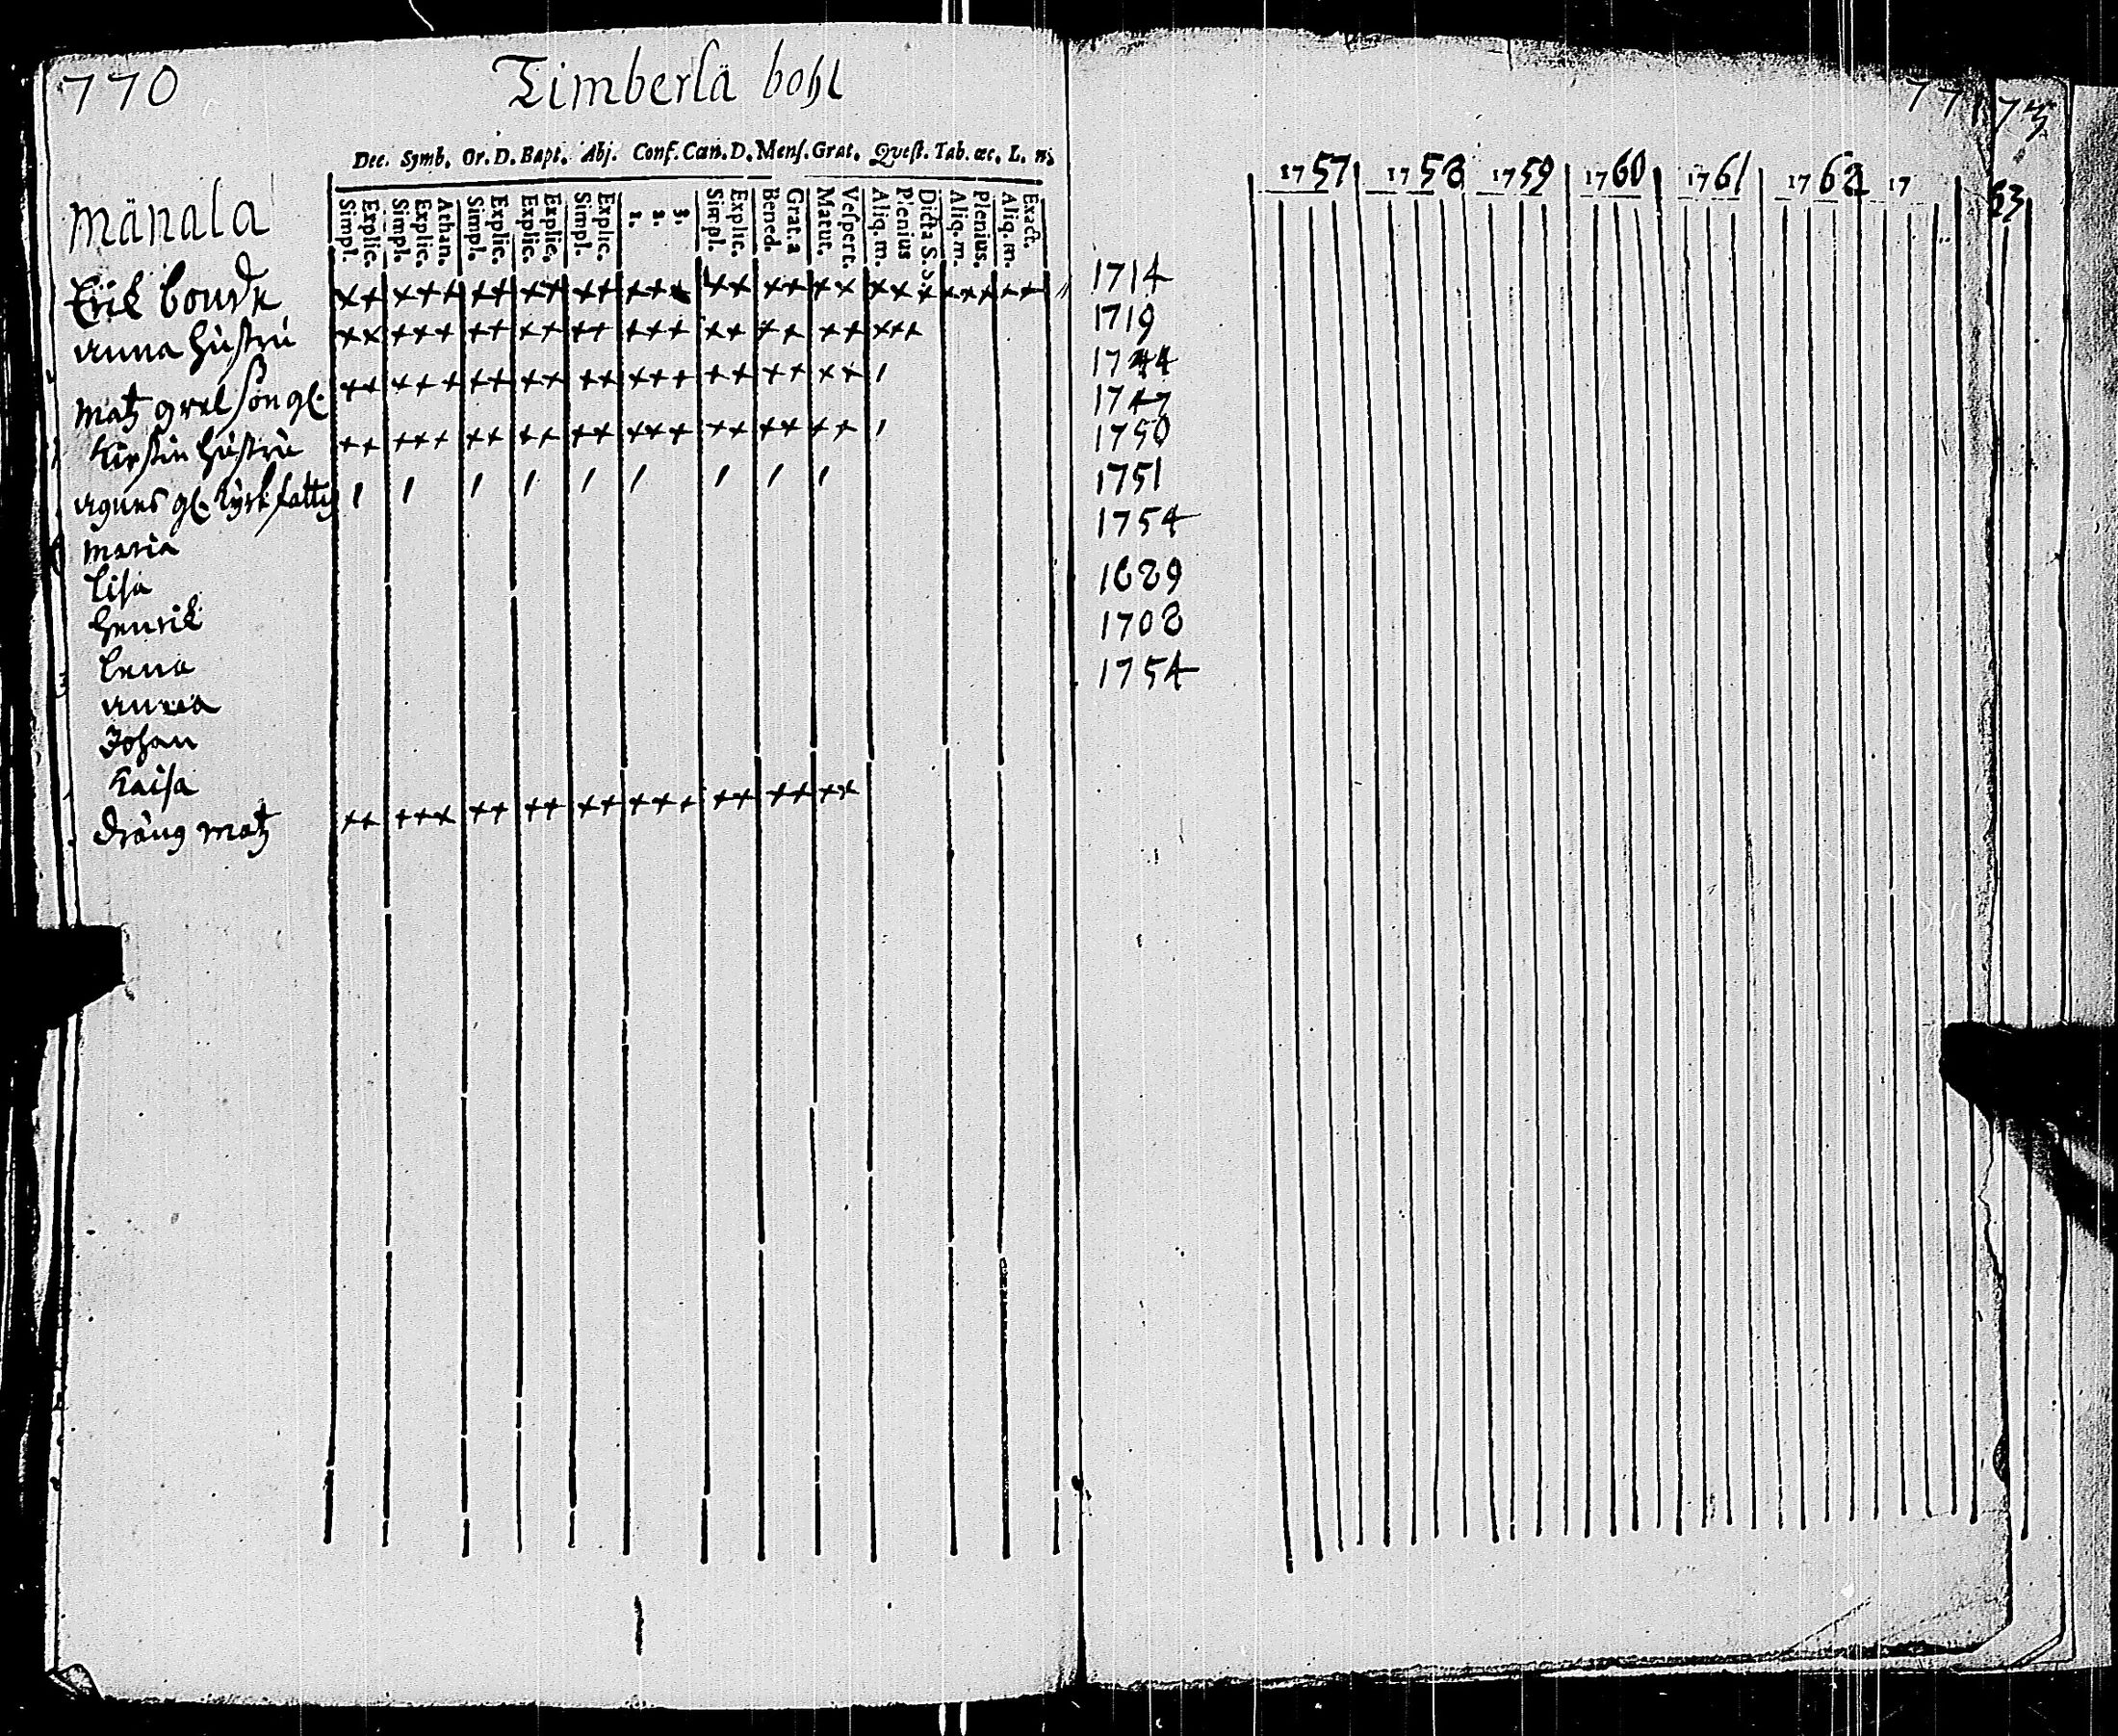 770
Timberlä bohl
Dec. Symb. Or. D. Bapt. Abj. Conf. Cœn. D. Menſ. Grat. Qveſt. Tab. œc. L. n.
Mänala
Simpl. Explic. Simpl. Explic. Athan. Simpl. Explic. Explic. Explic. Simpl. Explic. 1. 2. 3. Simpl. Explic. Bened. Grat. a Matut. Veſpert. Aliq. m. Plenius Dicta S. S. Aliq. m. Plenius. Aliq. m. Exact.
Erik bonde
Anna hustru
Matz son gl.
Kirstin hustru
Agnes gl. kyrk fattig
Maria
Lisa
Henrik
Lena
Anna
Johan
Kaisa
dräng Matz
77
1757 1758 1759 1760 1761 1762 17 63
1714
1719
1744
1747
1750
1751
1754
1689
1708
1754